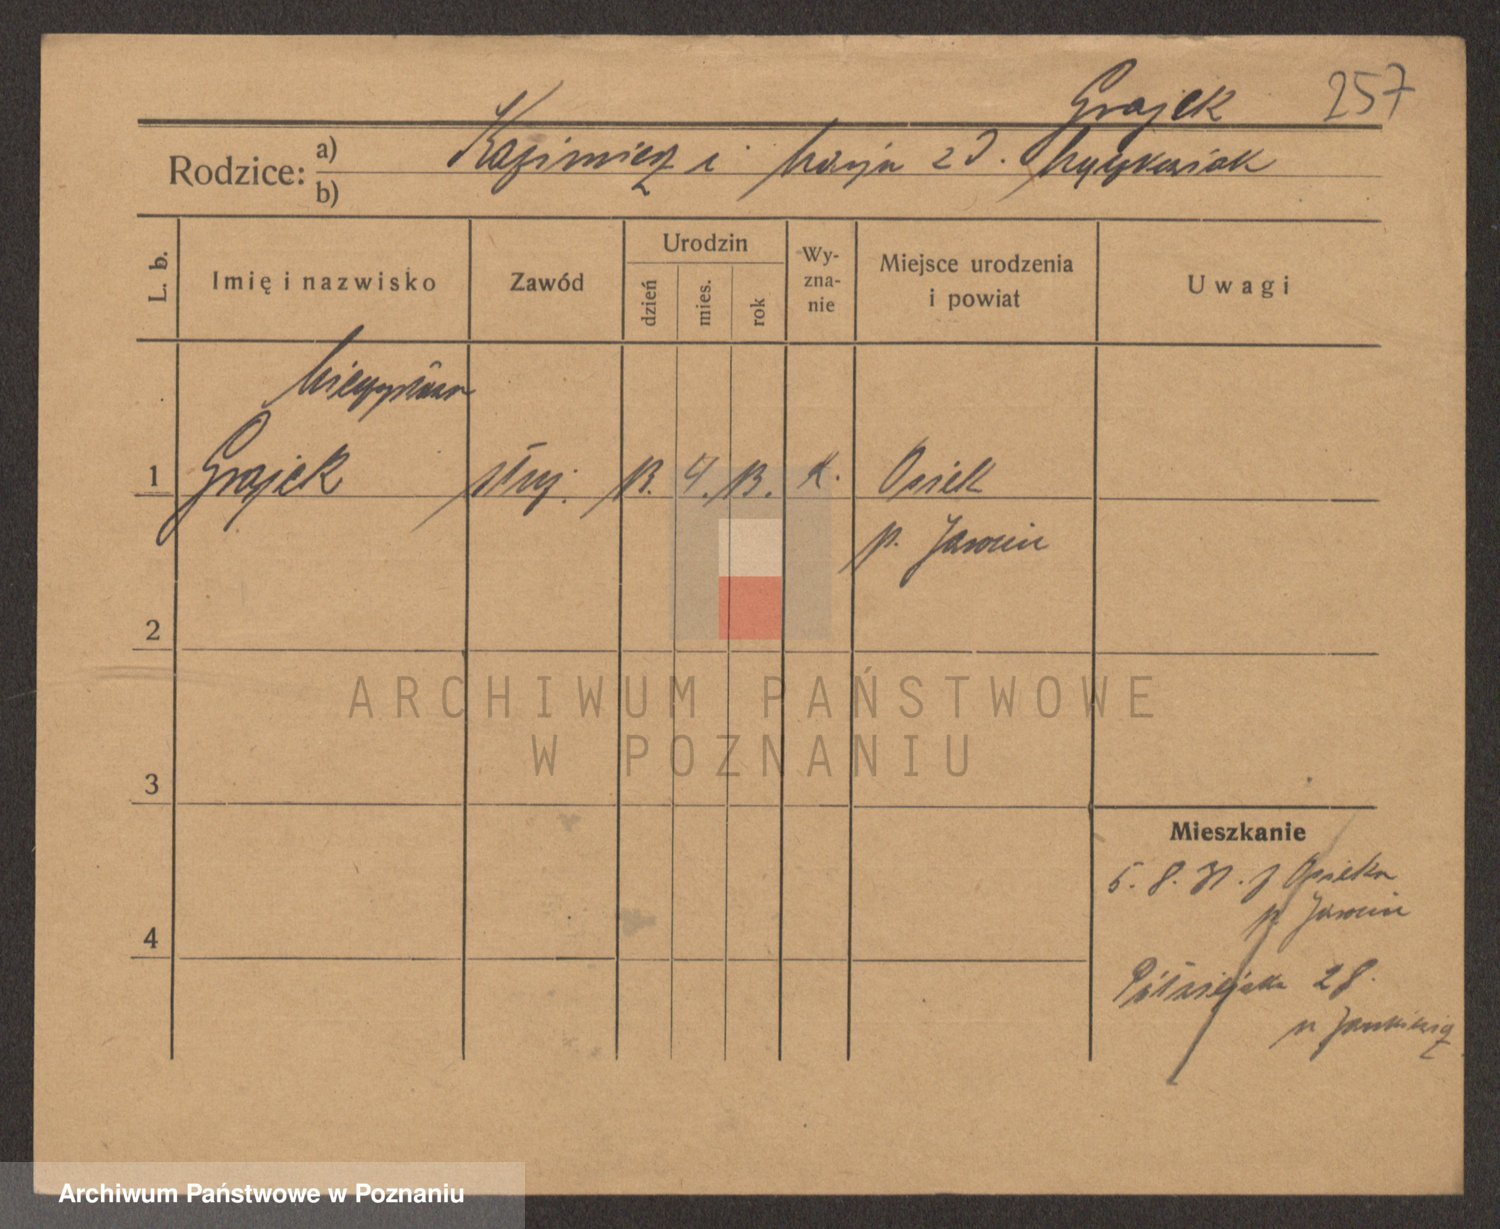 Grajek 257
Rodzice: a) Kazimierz i Marja z d.
b)
L. b. Imię i nazwisko Zawód Urodzin dzień mies. rok Wy-zna-nie Miejsce urodzenia i powiat Uwagi
Mieczysław
1 Grajek 13. 4. 13. k. Osiek
p. Jarocin
2
ARCHIWUM PAŃSTWOWE
W POZNANIU
3
Mieszkanie
5. 8. 31. z Osieka
p. Jarocin
4
28.
Archiwum Państwowe w Poznaniu